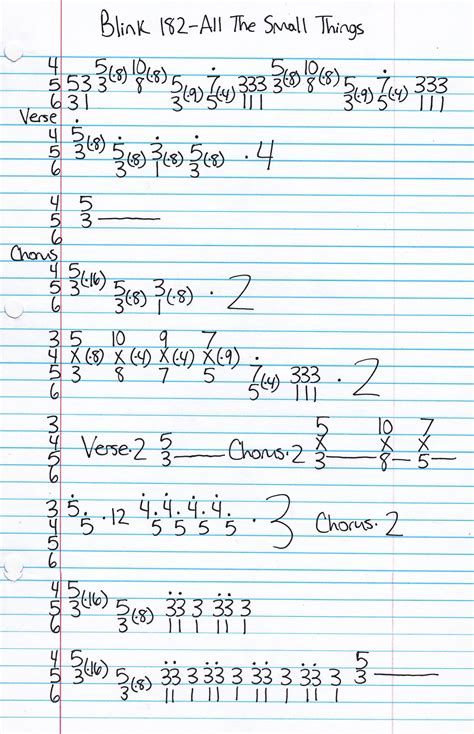 Blink 182-All The Small Things
4 5 10 5 10
5 53 3(·8) 8(·8) 5 7 333 3(·8) 8(·8) 5 7 333
6 31 3(·9) 5(·4) 111 3(·9) 5(·4) 111
Verse
4 5
5 3(·8) 5 3 5 · 4
6 3(·8) 1(·8) 3(·8)
4 5
5 3
6
Chorus
4 5
5 3(·16) 5 3 · 2
6 3(·8) 1(·8)
3 5 10 9 7
4 X(·8) X(·4) X(·4) X(·9)
5 3 8 7 5 7 333 · 2
6 5(·4) 111
3 5 10 7
4 Verse·2 5 Chorus·2 X X X
5 3 3 8 5
6
3 5. · 12 4. 4. 4. 4. · 3 Chorus·2
4 5 5 5 5 5
5
6
4 5
5 3(·16) 5 33 3 33 3
6 3(·8) 11 1 11 1
4 5 5
5 3(·16) 5 33 3 33 3 33 3 33 3 3
6 3(·8) 11 1 11 1 11 1 11 1